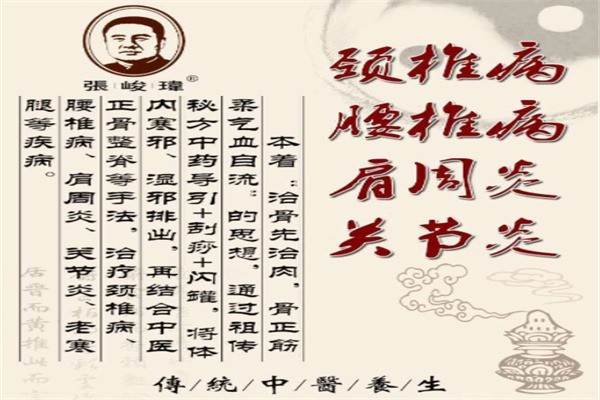 張峻瑋®
颈椎病
腰椎病
肩周炎
关节炎
本着:治骨先治肉,骨正筋
柔气血自流:的思想,通过祖传
秘方中药导引+刮痧+闪罐,将体
内寒邪、湿邪排出,再结合中医
正骨整脊等手法,治疗颈椎病、
腰椎病、肩周炎、关节炎、老寒
腿等疾病。
傳/統/中/醫/養/生